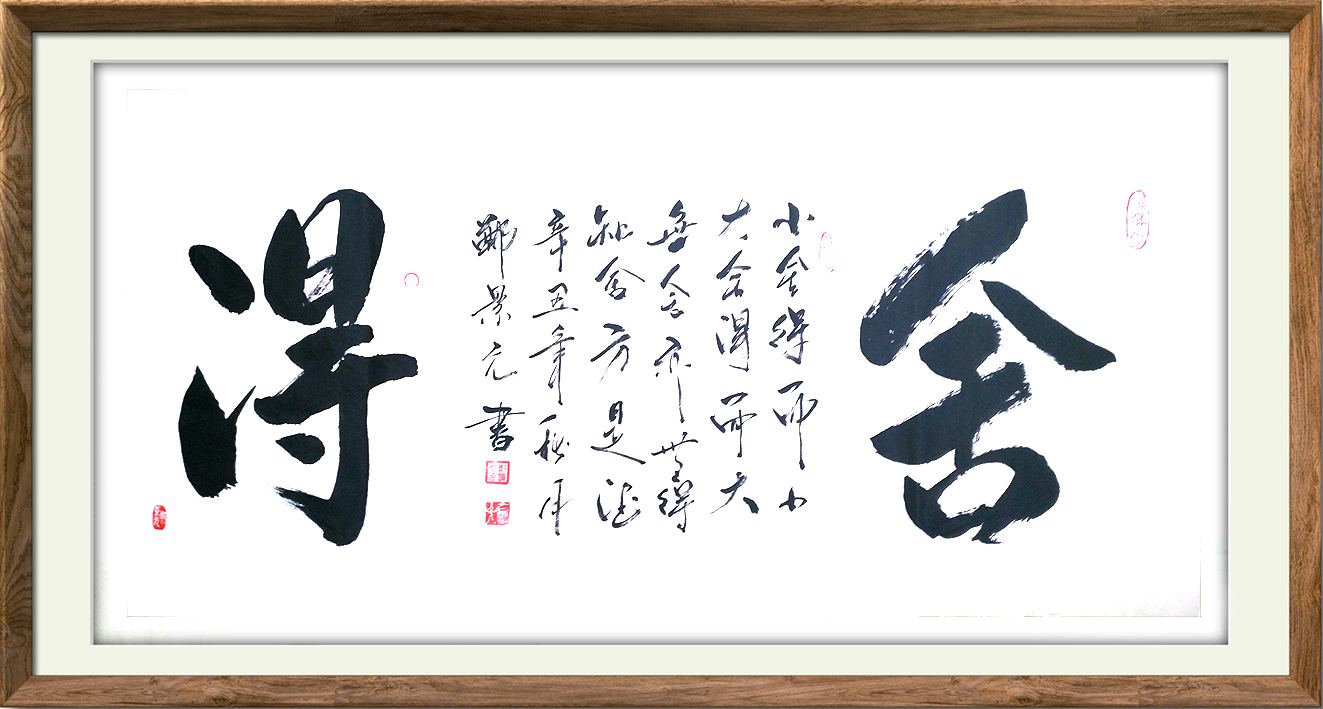 舍得
小舍得而小
大舍得而大
無舍亦無得
知舍方是德
辛丑年秋月
鄭景元書